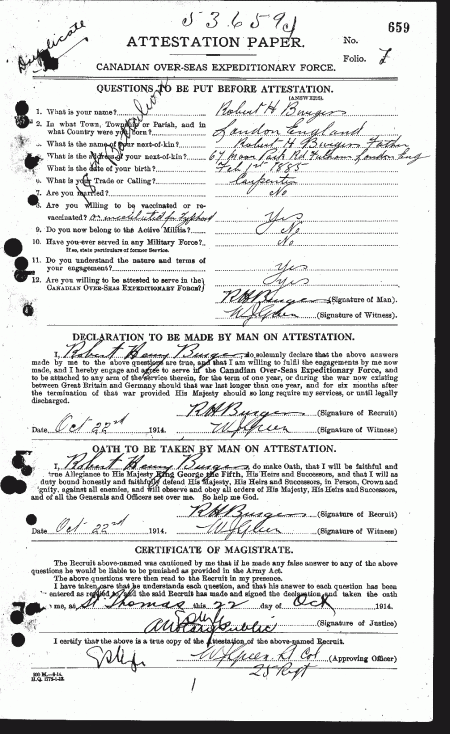 53659
659
Duplicate
No.
Folio. L
ATTESTATION PAPER.
CANADIAN OVER-SEAS EXPEDITIONARY FORCE.
QUESTIONS TO BE PUT BEFORE ATTESTATION.
(ANSWERS).
1. What is your name? Robert H Burgess
2. In what Town, Township or Parish, and in
what Country were you born? London England
What is the name of your next-of-kin? Robert H Burgess Father
What is the address of your next-of-kin? 67 Moor Park Rd Fulham London Eng
What is the date of your birth? Feb 1st 1885
What is your Trade or Calling? Carpenter
7. Are you married? No
Are you willing to be vaccinated or re-
vaccinated? or inoculated for Typhoid Yes
9. Do you now belong to the Active Militia? No
10. Have you ever served in any Military Force? No
If so, state particulars of former Service.
11. Do you understand the nature and terms of
your engagement? Yes
12. Are you willing to be attested to serve in the
CANADIAN OVER-SEAS EXPEDITIONARY FORCE? Yes
R H Burgess (Signature of Man).
(Signature of Witness).
DECLARATION TO BE MADE BY MAN ON ATTESTATION.
I, Robert Henry Burgess, do solemnly declare that the above answers
made by me to the above questions are true, and that I am willing to fulfil the engagements by me now
made, and I hereby engage and agree to serve in the Canadian Over-Seas Expeditionary Force, and
to be attached to any arm of the service therein, for the term of one year, or during the war now existing
between Great Britain and Germany should that war last longer than one year, and for six months after
the termination of that war provided His Majesty should so long require my services, or until legally
discharged.
R H Burgess (Signature of Recruit)
Date Oct 22nd 1914. (Signature of Witness)
OATH TO BE TAKEN BY MAN ON ATTESTATION.
I, Robert Henry Burgess, do make Oath, that I will be faithful and
true Allegiance to His Majesty King George the Fifth, His Heirs and Successors, and that I will as
duty bound honestly and faithfully defend His Majesty, His Heirs and Successors, in Person, Crown and
Dignity, against all enemies, and will observe and obey all orders of His Majesty, His Heirs and Successors,
and of all the Generals and Officers set over me. So help me God.
R H Burgess (Signature of Recruit)
Date Oct 22nd 1914. (Signature of Witness)
CERTIFICATE OF MAGISTRATE.
The Recruit above-named was cautioned by me that if he made any false answer to any of the above
questions he would be liable to be punished as provided in the Army Act.
The above questions were then read to the Recruit in my presence.
I have taken care that he understands each question, and that his answer to each question has been
entered as replied to, and the said Recruit has made and signed the declaration and taken the oath
me, at St Thomas this 22 day of Oct 1914.
(Signature of Justice)
A Notary Public
I certify that the above is a true copy of the Attestation of the above-named Recruit.
Lt Col (Approving Officer)
25 Regt
H.Q. 1772-1-23.
1